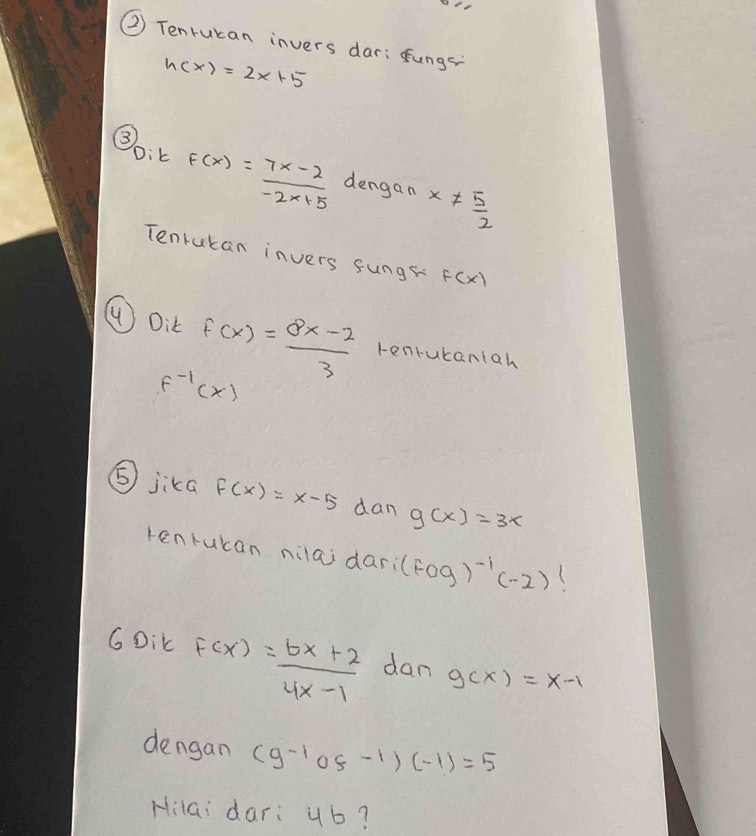 ② Tentukan invers dari fungsi
h(x) = 2x+5
③ Dik F(x) = \frac{7x-2}{-2x+5} dengan x ≠ \frac{5}{2}
Tentukan invers fungsi F(x)
④ Dik f(x) = \frac{8x-2}{3} tentukanlah
F⁻¹(x)
⑤ jika F(x) = x-5 dan g(x) = 3x
tentukan nilai dari (Fog)⁻¹(-2)!
6 Dik F(x) = \frac{bx+2}{4x-1} dan g(x) = x-1
dengan (g⁻¹of⁻¹)(-1) = 5
Nilai dari 4b?